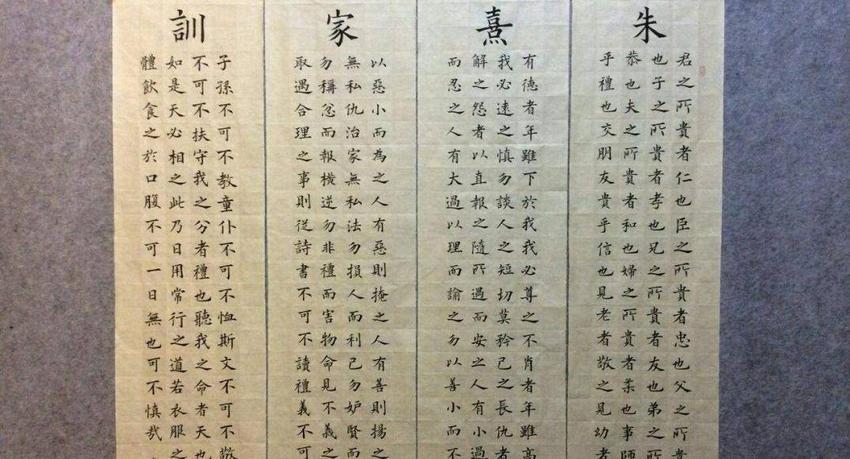 朱熹家訓
君之所貴者仁也臣之所貴者忠也父之所貴
也子之所貴者孝也兄之所貴者友也弟之所
恭也夫之所貴者和也婦之所貴者柔也事師
乎禮也交朋友貴乎信也見老者敬之見幼者
有德者年雖下於我我必尊之不肖者年雖高
我必遠之慎勿談人之短切莫矜己之長仇者
解之怨者以直報之隨所遇而安之人有小過
而忍之人有大過以理而諭之勿以善小而不
以惡小而為之人有惡則掩之人有善則揚之
無私仇治家無私法勿損人而利己勿妒賢而
勿稱忿而報橫逆勿非禮而害物命見不義之
取遇合理之事則從詩書不可不讀禮義不可
子孫不可不教童仆不可不恤斯文不可不敬
不可不扶守我之分者禮也聽我之命者天也
如是天必相之此乃日用常行之道若衣服之
體飲食之於口腹不可一日無也可不慎哉